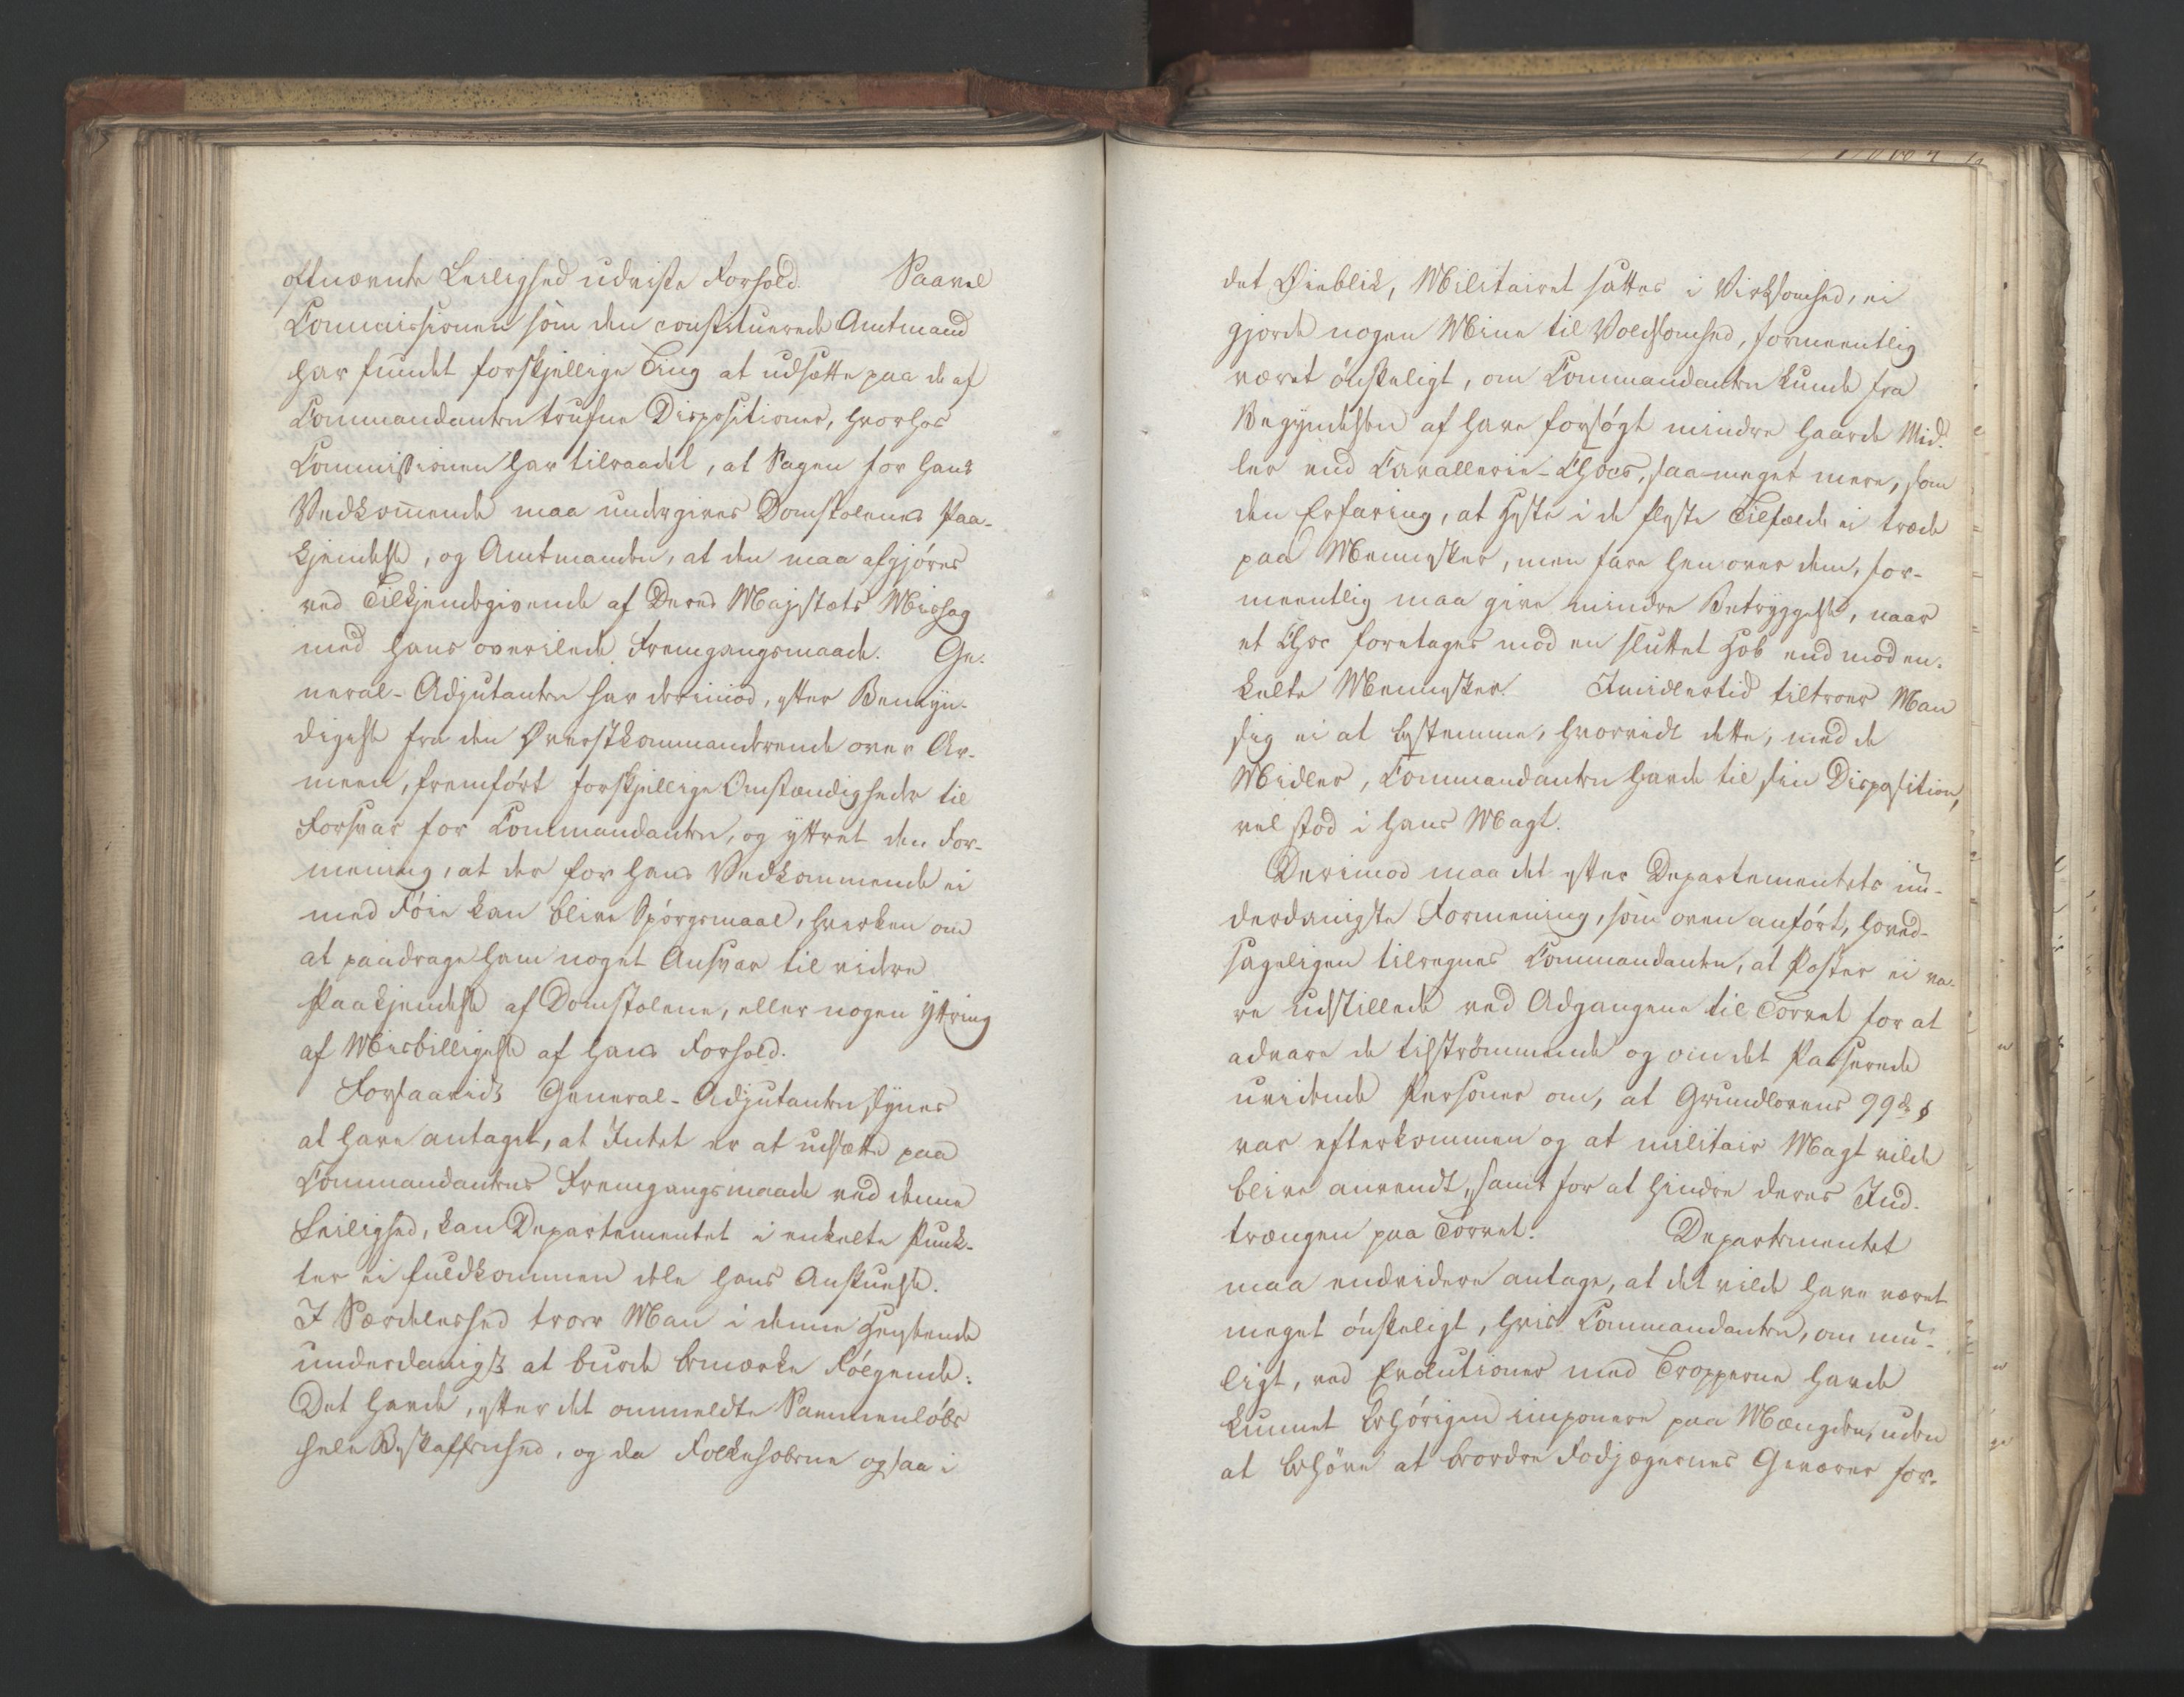 oftnævnte Leilighed udviste Forhold. Saavel
Commissionen som den constituerede Amtmand
har fundet forskjellige Ting at udsætte paa de af
Commandanten trufne Dispositioner, hvorhos
Commissionen har tilraadet, at Sagen for hans
Vedkommende maa undergives Domstolenes Paa-
kjendelse, og Amtmanden, at den maa afgjöres
ved Tilkjendegivende af Deres Majestæts Mishag
med hans overilede Fremgangsmaade. Ge-
neral-Adjutanten har derimod, efter Bemyn-
digelse fra den Øverstkommanderende over Ar-
meen, fremført forskjellige Omstændigheder til
Forsvar for Commandanten, og yttret den For-
mening, at der for hans Vedkommende ei
med Föie kan blive Spörgsmaal, hverken om
at paadrage ham noget Ansvar til videre
Paakjendelse af Domstolene, eller nogen Yttring
af Misbilligelse af hans Forhold.
Forsaavidt General-Adjutanten synes
at have antaget, at Intet er at udsætte paa
Commandantens Fremgangsmaade ved denne
Leilighed, kan Departementet i enkelte Punk-
ter ei fuldkommen dele hans Anskuelse.
I Særdeleshed troer Man i denne Henseende
underdanigst at burde bemærke Fölgende:
Det havde, efter det ommeldte Sammenlöbs
hele Beskaffenhed, og da Folkehoberne ogsaa i
det Øieblik, Militairet sattes i Virksomhed, ei
gjorde nogen Mine til Voldsomhed, formeentlig
været önskeligt, om Commandanten kunde fra
Begyndelsen af have forsögt mindre haarde Mid-
ler end Cavallerie-Chocs, saameget mere, som
den Erfaring, at Heste i de fleste Tilfælde ei træde
paa Mennesker, men fare hen over dem, for-
meentlig maa give mindre Betryggelse, naar
et Choc foretages mod en sluttet Hob end mod en-
kelte Mennesker. Imidlertid tiltroer Man
sig ei at bestemme, hvorvidt dette, med de
Midler, Commandanten havde til sin Disposition,
vel stod i hans Magt.
Derimod maa det efter Departementets un-
derdanigste Formening, som oven anfört, hoved-
sageligen tilregnes Commandanten, at Poster ei va-
re udstillede ved Adgangene til Torvet for at
advare de tilströmmende og om det Passerede
uvidende Personer om, at Grundlovens 99de §
var efterkommen og at militair Magt vilde
blive anvendt, samt for at hindre deres Ind-
trængen paa Torvet. Departementet
maa endvidere antage, at det vilde have været
meget önskeligt, hvis Commandanten, om mu-
ligt, ved Evolutioner med Tropperne havde
kunnet behörigen imponere paa Mængden, uden
at behöve at beordre Fodjægernes Geværer for-